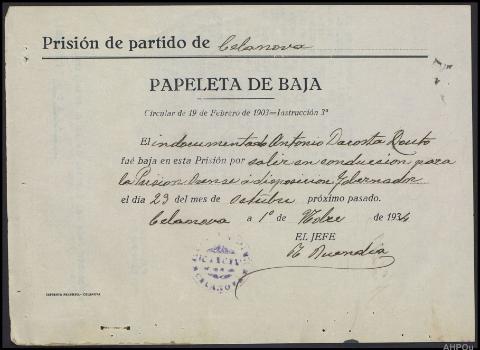 Prisión de partido de Celanova
PAPELETA DE BAJA
Circular de 19 de Febrero de 1903—Instrucción 3ª
El indocumentado Antonio Dacosta Couto
fué baja en esta Prisión por salir en conduccion para
la Prision Orense á disposicion Gobernador
el día 29 del mes de octubre próximo pasado.
Celanova a 1º de Nbre de 1934
EL JEFE
Buendia
CELANOVA
IMPRENTA PELETEIRO.-CELANOVA
AHPOu